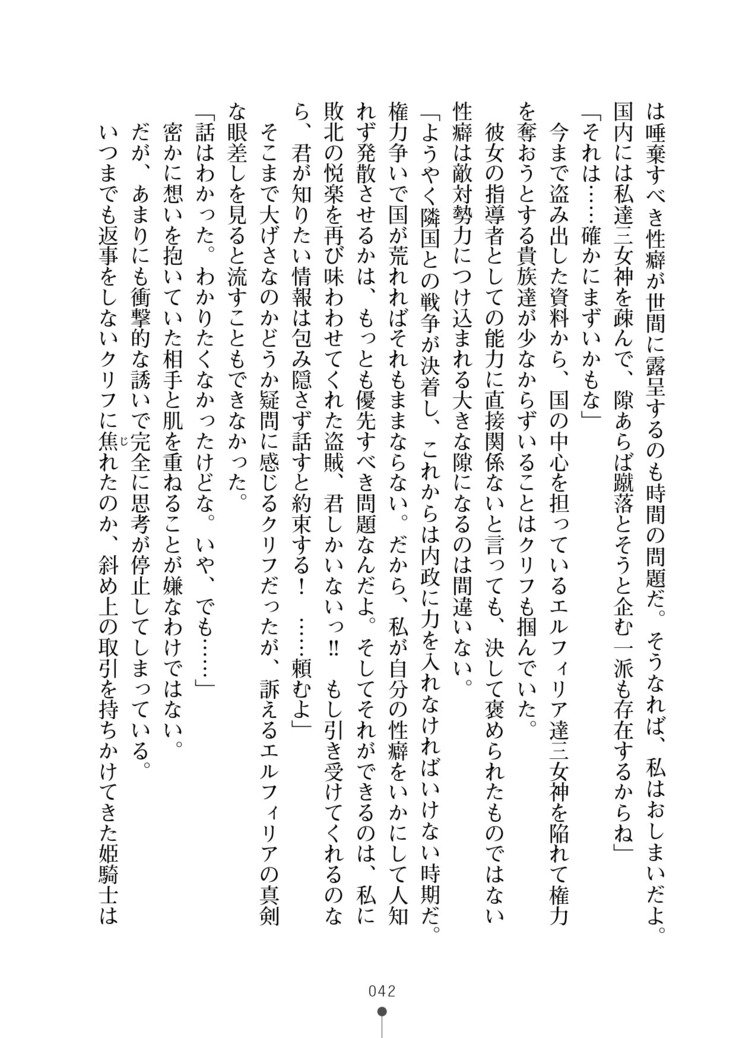 は唾棄すべき性癖が世間に露呈するのも時間の問題だ。そうなれば、私はおしまいだよ。
国内には私達三女神を疎んで、隙あらば蹴落とそうと企む一派も存在するからね」
「それは……確かにまずいかもな」
　今まで盗み出した資料から、国の中心を担っているエルフィリア達三女神を陥れて権力
を奪おうとする貴族達が少なからずいることはクリフも掴んでいた。
　彼女の指導者としての能力に直接関係ないと言っても、決して褒められたものではない
性癖は敵対勢力につけ込まれる大きな隙になるのは間違いない。
「ようやく隣国との戦争が決着し、これからは内政に力を入れなければいけない時期だ。
権力争いで国が荒れればそれもままならない。だから、私が自分の性癖をいかにして人知
れず発散させるかは、もっとも優先すべき問題なんだよ。そしてそれができるのは、私に
敗北の悦楽を再び味わわせてくれた盗賊、君しかいないっ‼　もし引き受けてくれるのな
ら、君が知りたい情報は包み隠さず話すと約束する！　……頼むよ」
　そこまで大げさなのかどうか疑問に感じるクリフだったが、訴えるエルフィリアの真剣
な眼差しを見ると流すこともできなかった。
「話はわかった。わかりたくなかったけどな。いや、でも……」
　密かに想いを抱いていた相手と肌を重ねることが嫌なわけではない。
　だが、あまりにも衝撃的な誘いで完全に思考が停止してしまっている。
　いつまでも返事をしないクリフに焦れたのか、斜め上の取引を持ちかけてきた姫騎士は
じ
042